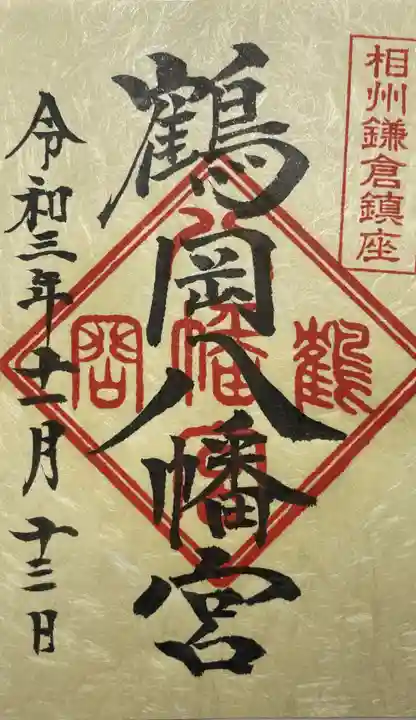 相州鎌倉鎮座
鶴岡八幡宮
令和三年十一月十三日